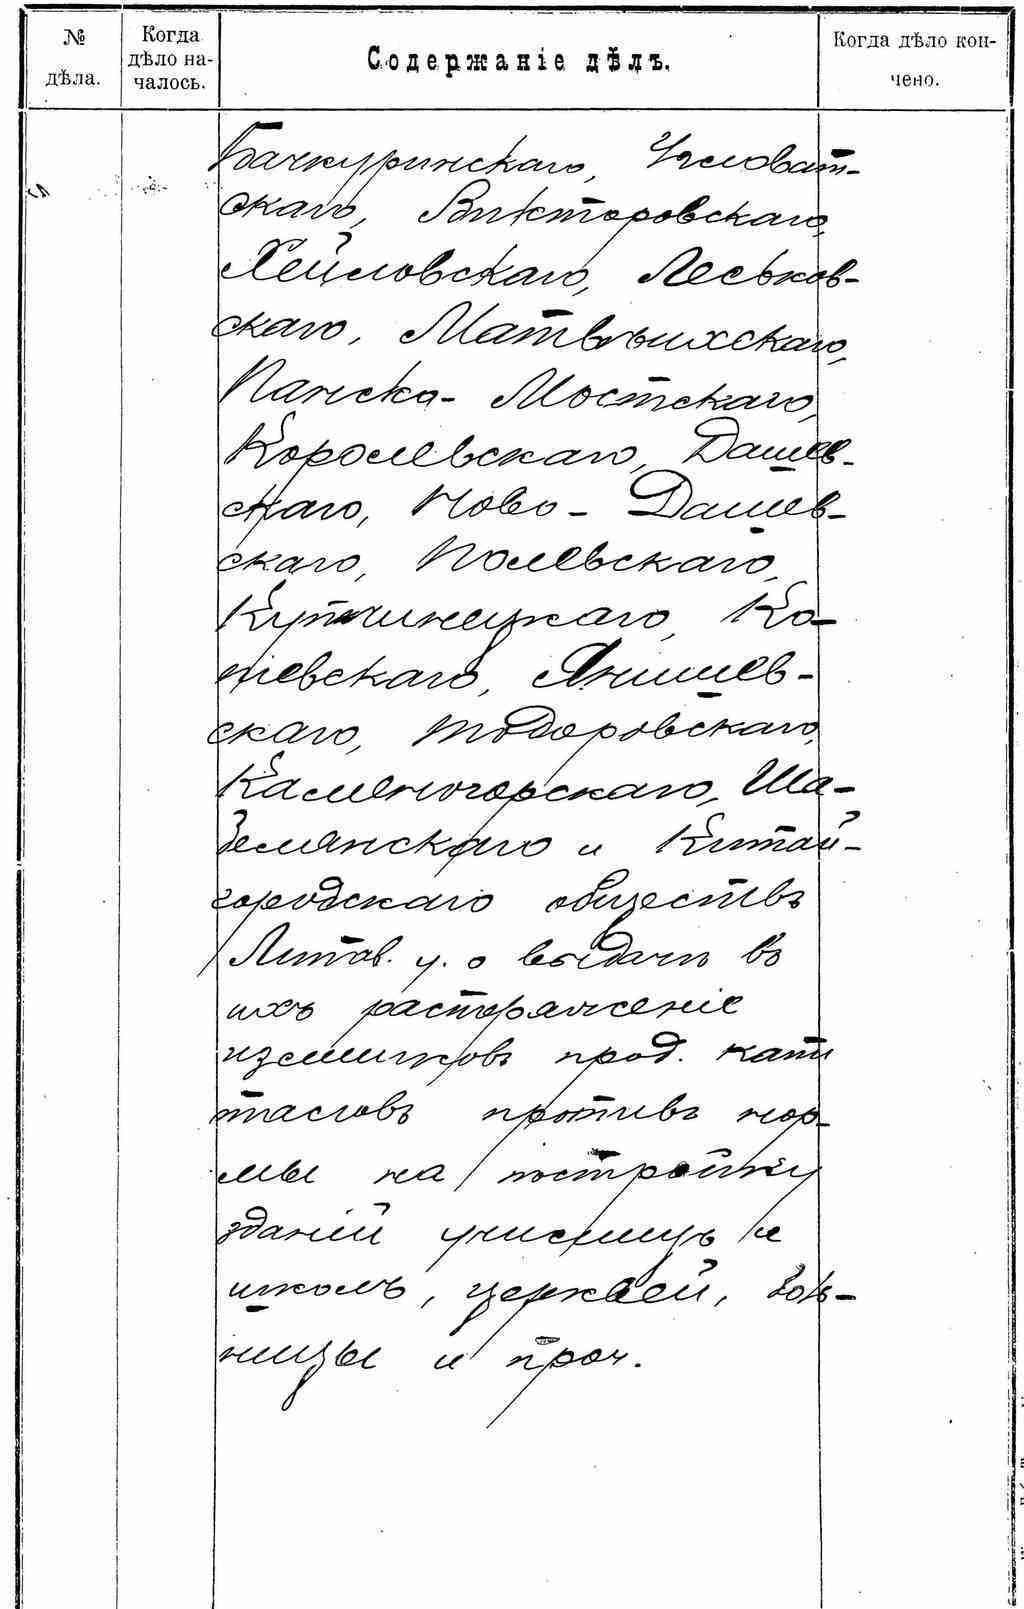 № дѣла.
Когда дѣло на-
чалось.
Содержаніе дѣлъ.
Когда дѣло кон-
чено.
Бачкуринскаго, Чаловат-
скаго, Викторовскаго,
Хейловскаго, Леськов-
скаго, Матвѣихскаго,
Панско-Мостскаго,
Королевскаго, Дашев-
скаго, Ново-Дашев-
скаго, Полевскаго,
Купчинецкаго, Ко-
шевскаго, Янишев-
скаго, Тодоровскаго,
Каменогорскаго, Ша-
белянскаго и Китай-
городскаго обществъ
Липов. у. о выдачѣ въ
ихъ распоряженіе
излишковъ прод. капи
таловъ противъ нор-
мы на постройку
зданій училищъ и
школъ, церквей, боль-
ницы и проч.